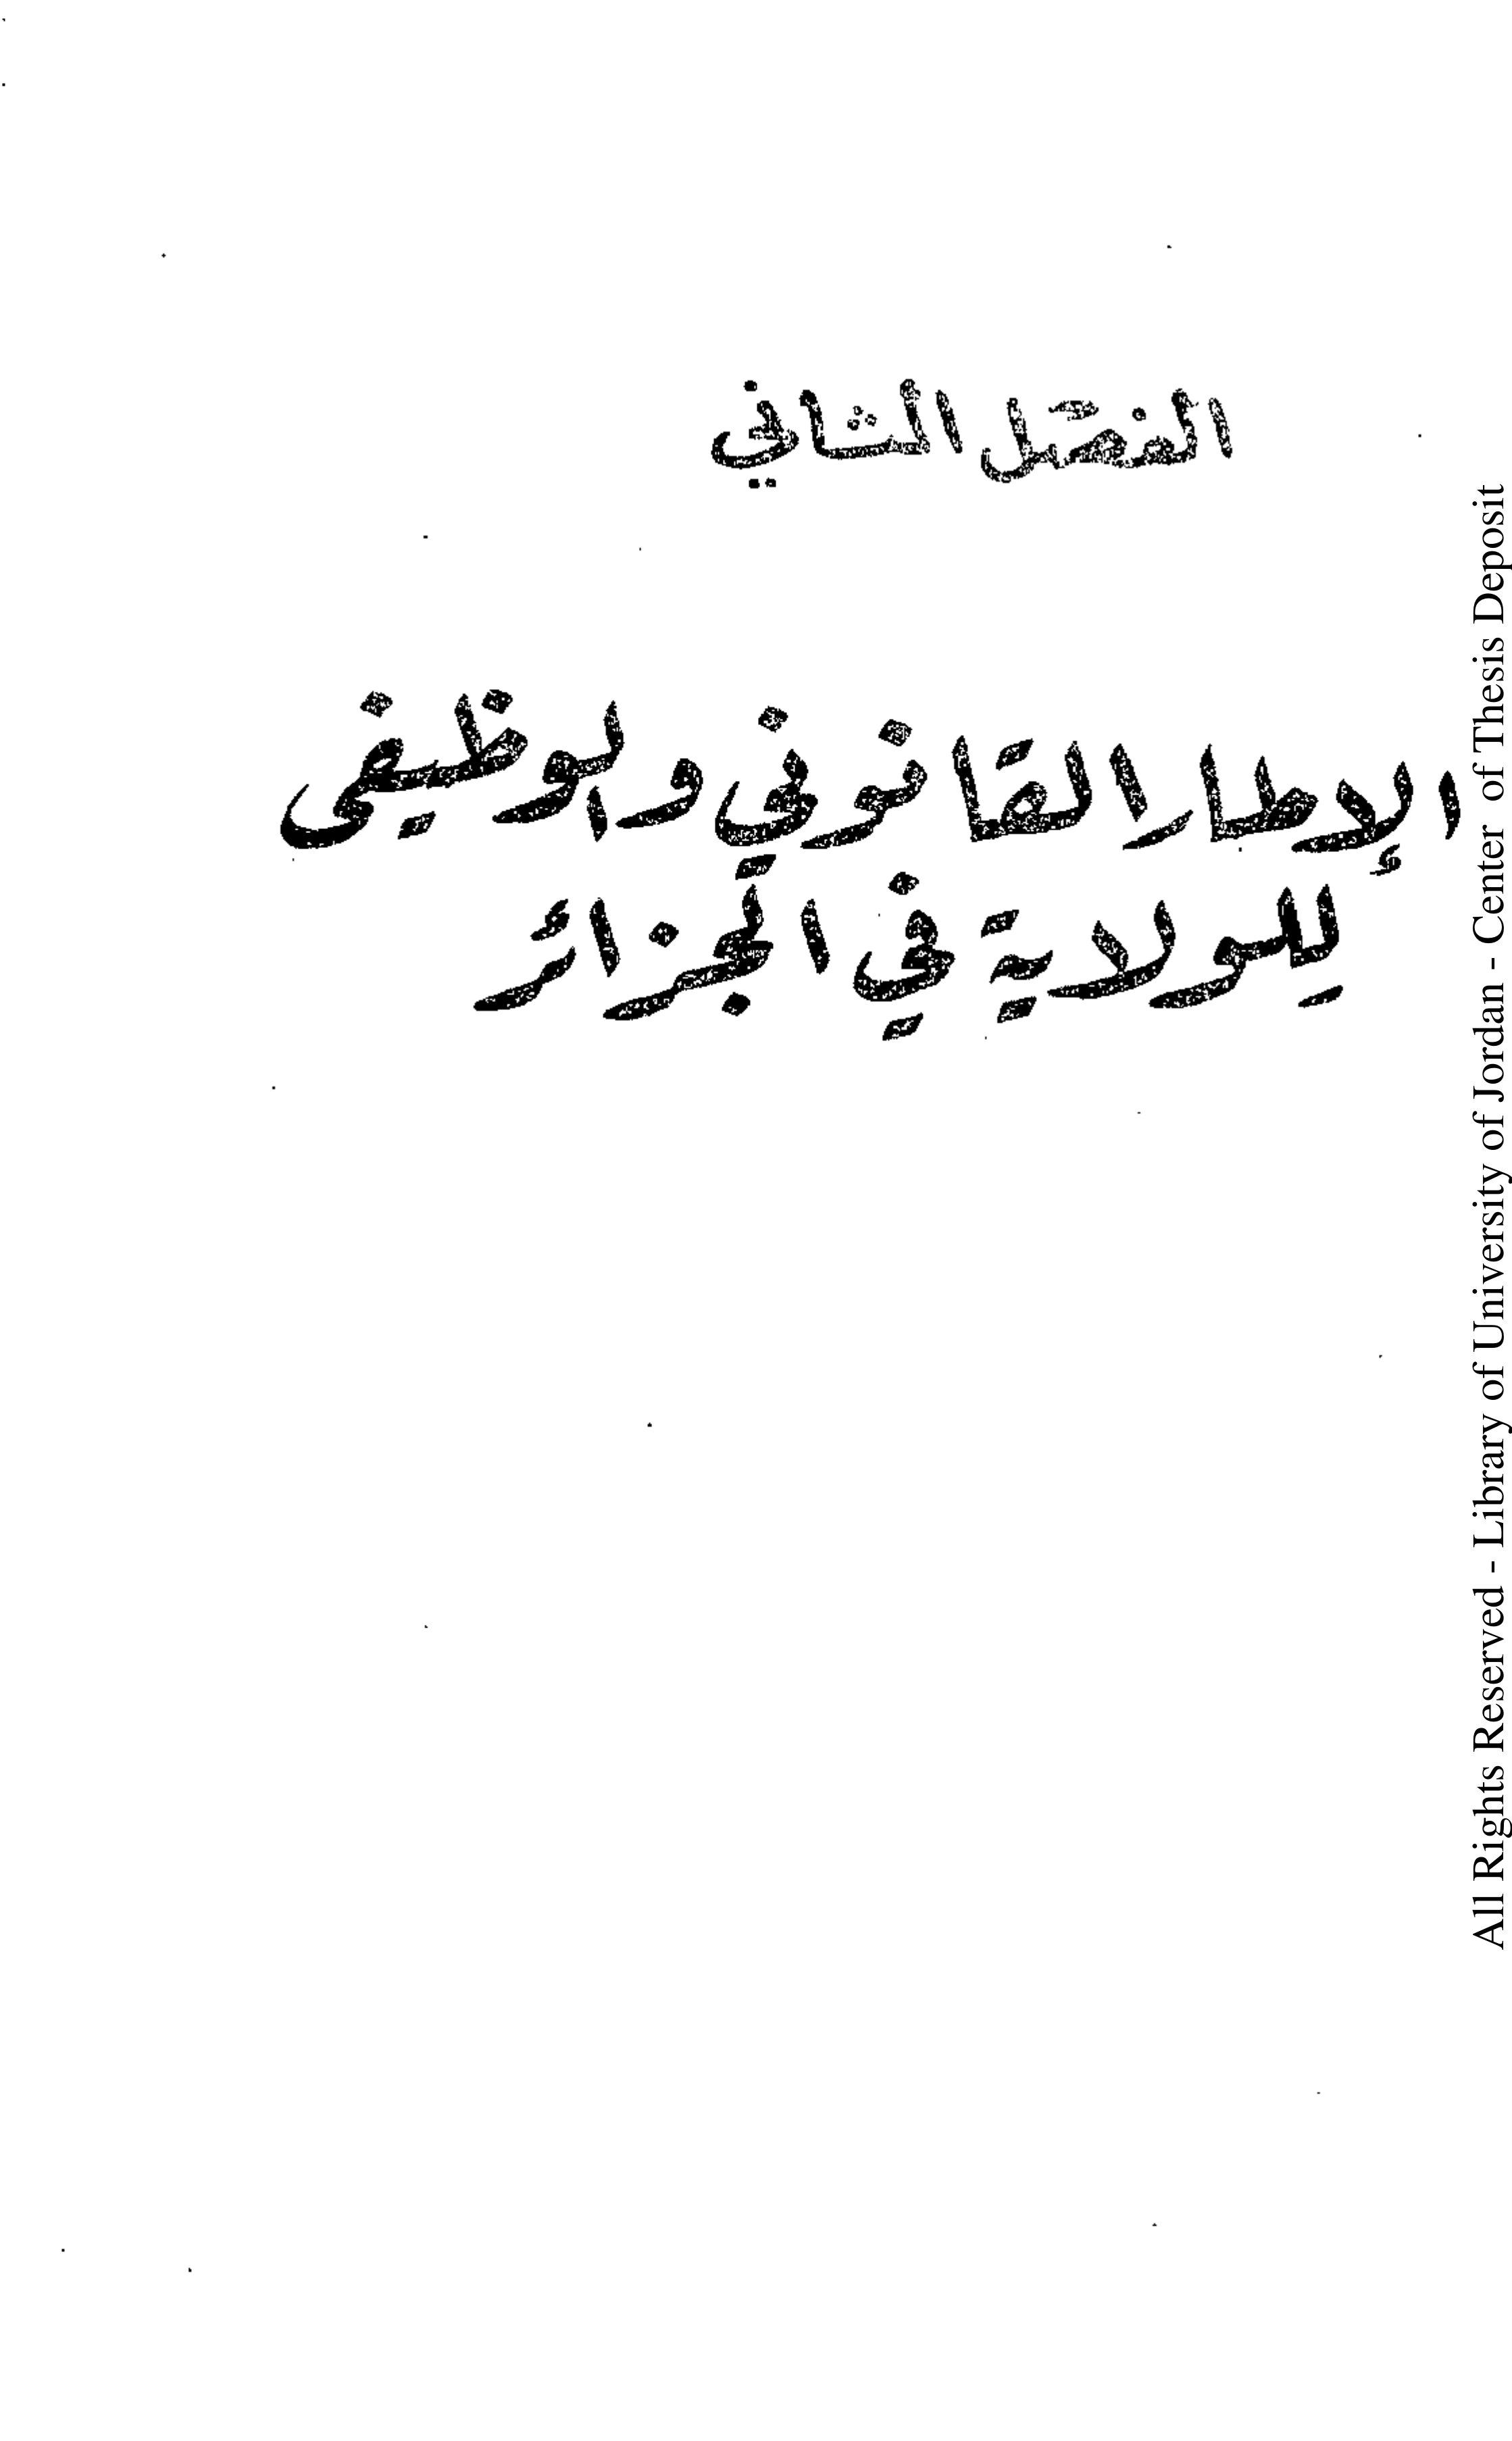 الفصل الثاني
الإطار القانوني والوظيفي
للولاية في الجزائر
All Rights Reserved - Library of University of Jordan - Center of Thesis Deposit